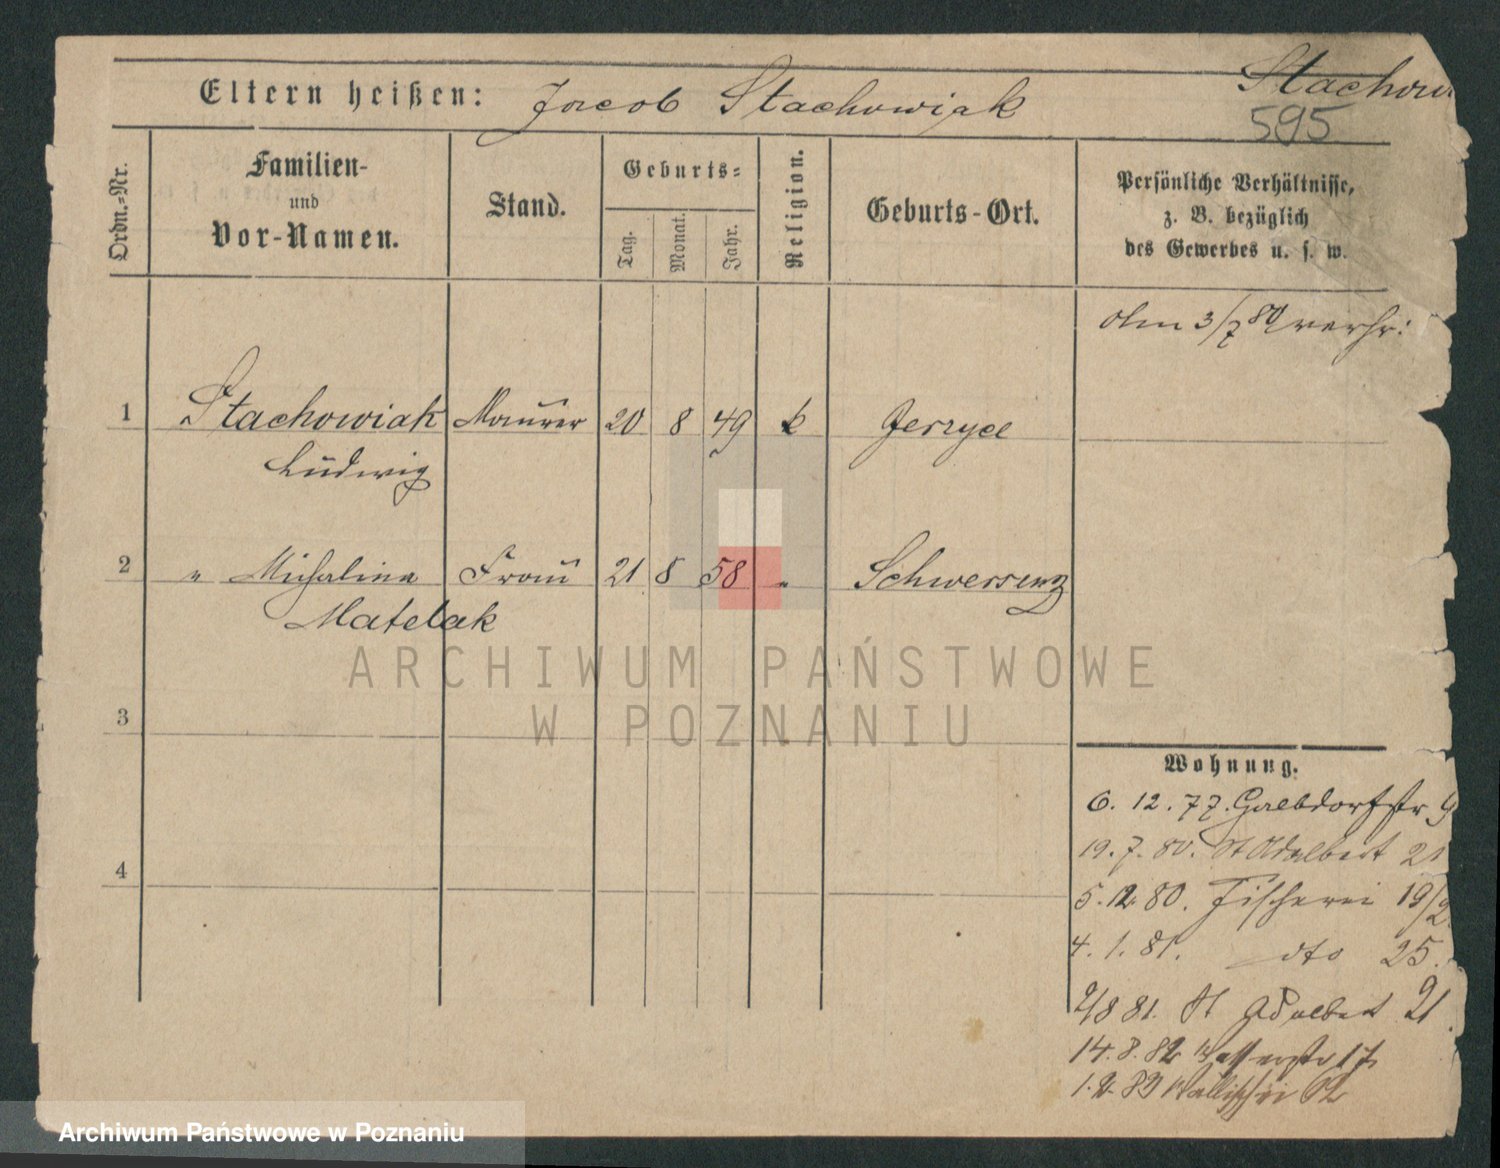 Eltern heißen: Jacob Stachowiak
Stachow
595
Ordn.=Nr.
Familien-
und
Vor-Namen.
Stand.
Geburts=
Tag.
Monat.
Jahr.
Religion.
Geburts-Ort.
Persönliche Verhältnisse,
z. B. bezüglich
des Gewerbes u. s. w.
3/7 80 verh:
1 Stachowiak Maurer 20 8 49 k Jerzyce
Ludwig
2 " Michalina Frau 21 8 58 " Schwersenz
Matelak
3
4
Wohnung.
6. 12. 77. 9
19. 7. 80. St Adalbert 21
5. 12 80. Fischerei 19/2
4. 1. 81. dto 25.
2/8 81. St Adalbert 21.
14. 8. 82 Wasserstr 17
1. 2. 83 Wallischei 62
ARCHIWUM PAŃSTWOWE
W POZNANIU
Archiwum Państwowe w Poznaniu